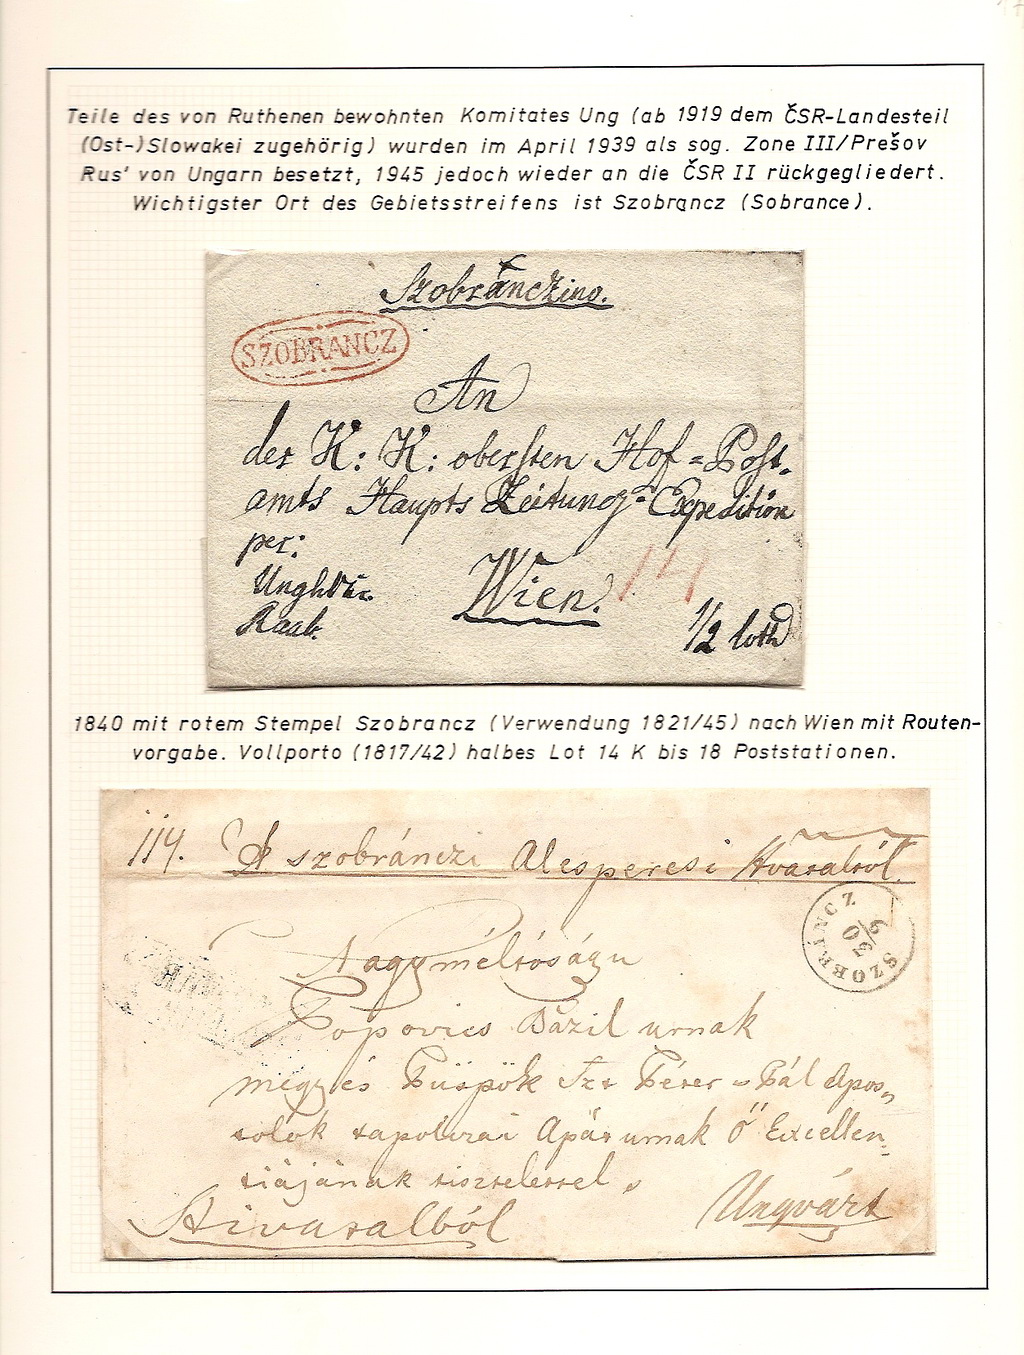 Teile des von Ruthenen bewohnten Komitates Ung (ab 1919 dem ČSR-Landesteil
(Ost-)Slowakei zugehörig) wurden im April 1939 als sog. Zone III/Prešov
Rus' von Ungarn besetzt, 1945 jedoch wieder an die ČSR II rückgegliedert.
Wichtigster Ort des Gebietsstreifens ist Szobrancz (Sobrance).
Szobránczino.
SZOBRANCZ
An
der K: K: obersten Hof=Post-
amts Haupts Zeitungs=Expedition
per:
Unghvár
Raab.
Wien.
14
1/2 loth
1840 mit rotem Stempel Szobrancz (Verwendung 1821/45) nach Wien mit Routen-
vorgabe. Vollporto (1817/42) halbes Lot 14 K bis 18 Poststationen.
114. A szobránczi Alesperesi Hivatalról.
SZOBRÁNCZ
Nagyméltóságu
Popovics Bazil urnak
megyés Püspök Szt Péter=Pál Apos-
tolok tapolczai Apát urnak Ő Excellen-
tiájának tisztelettel,
Hivatalból
Ungvárt